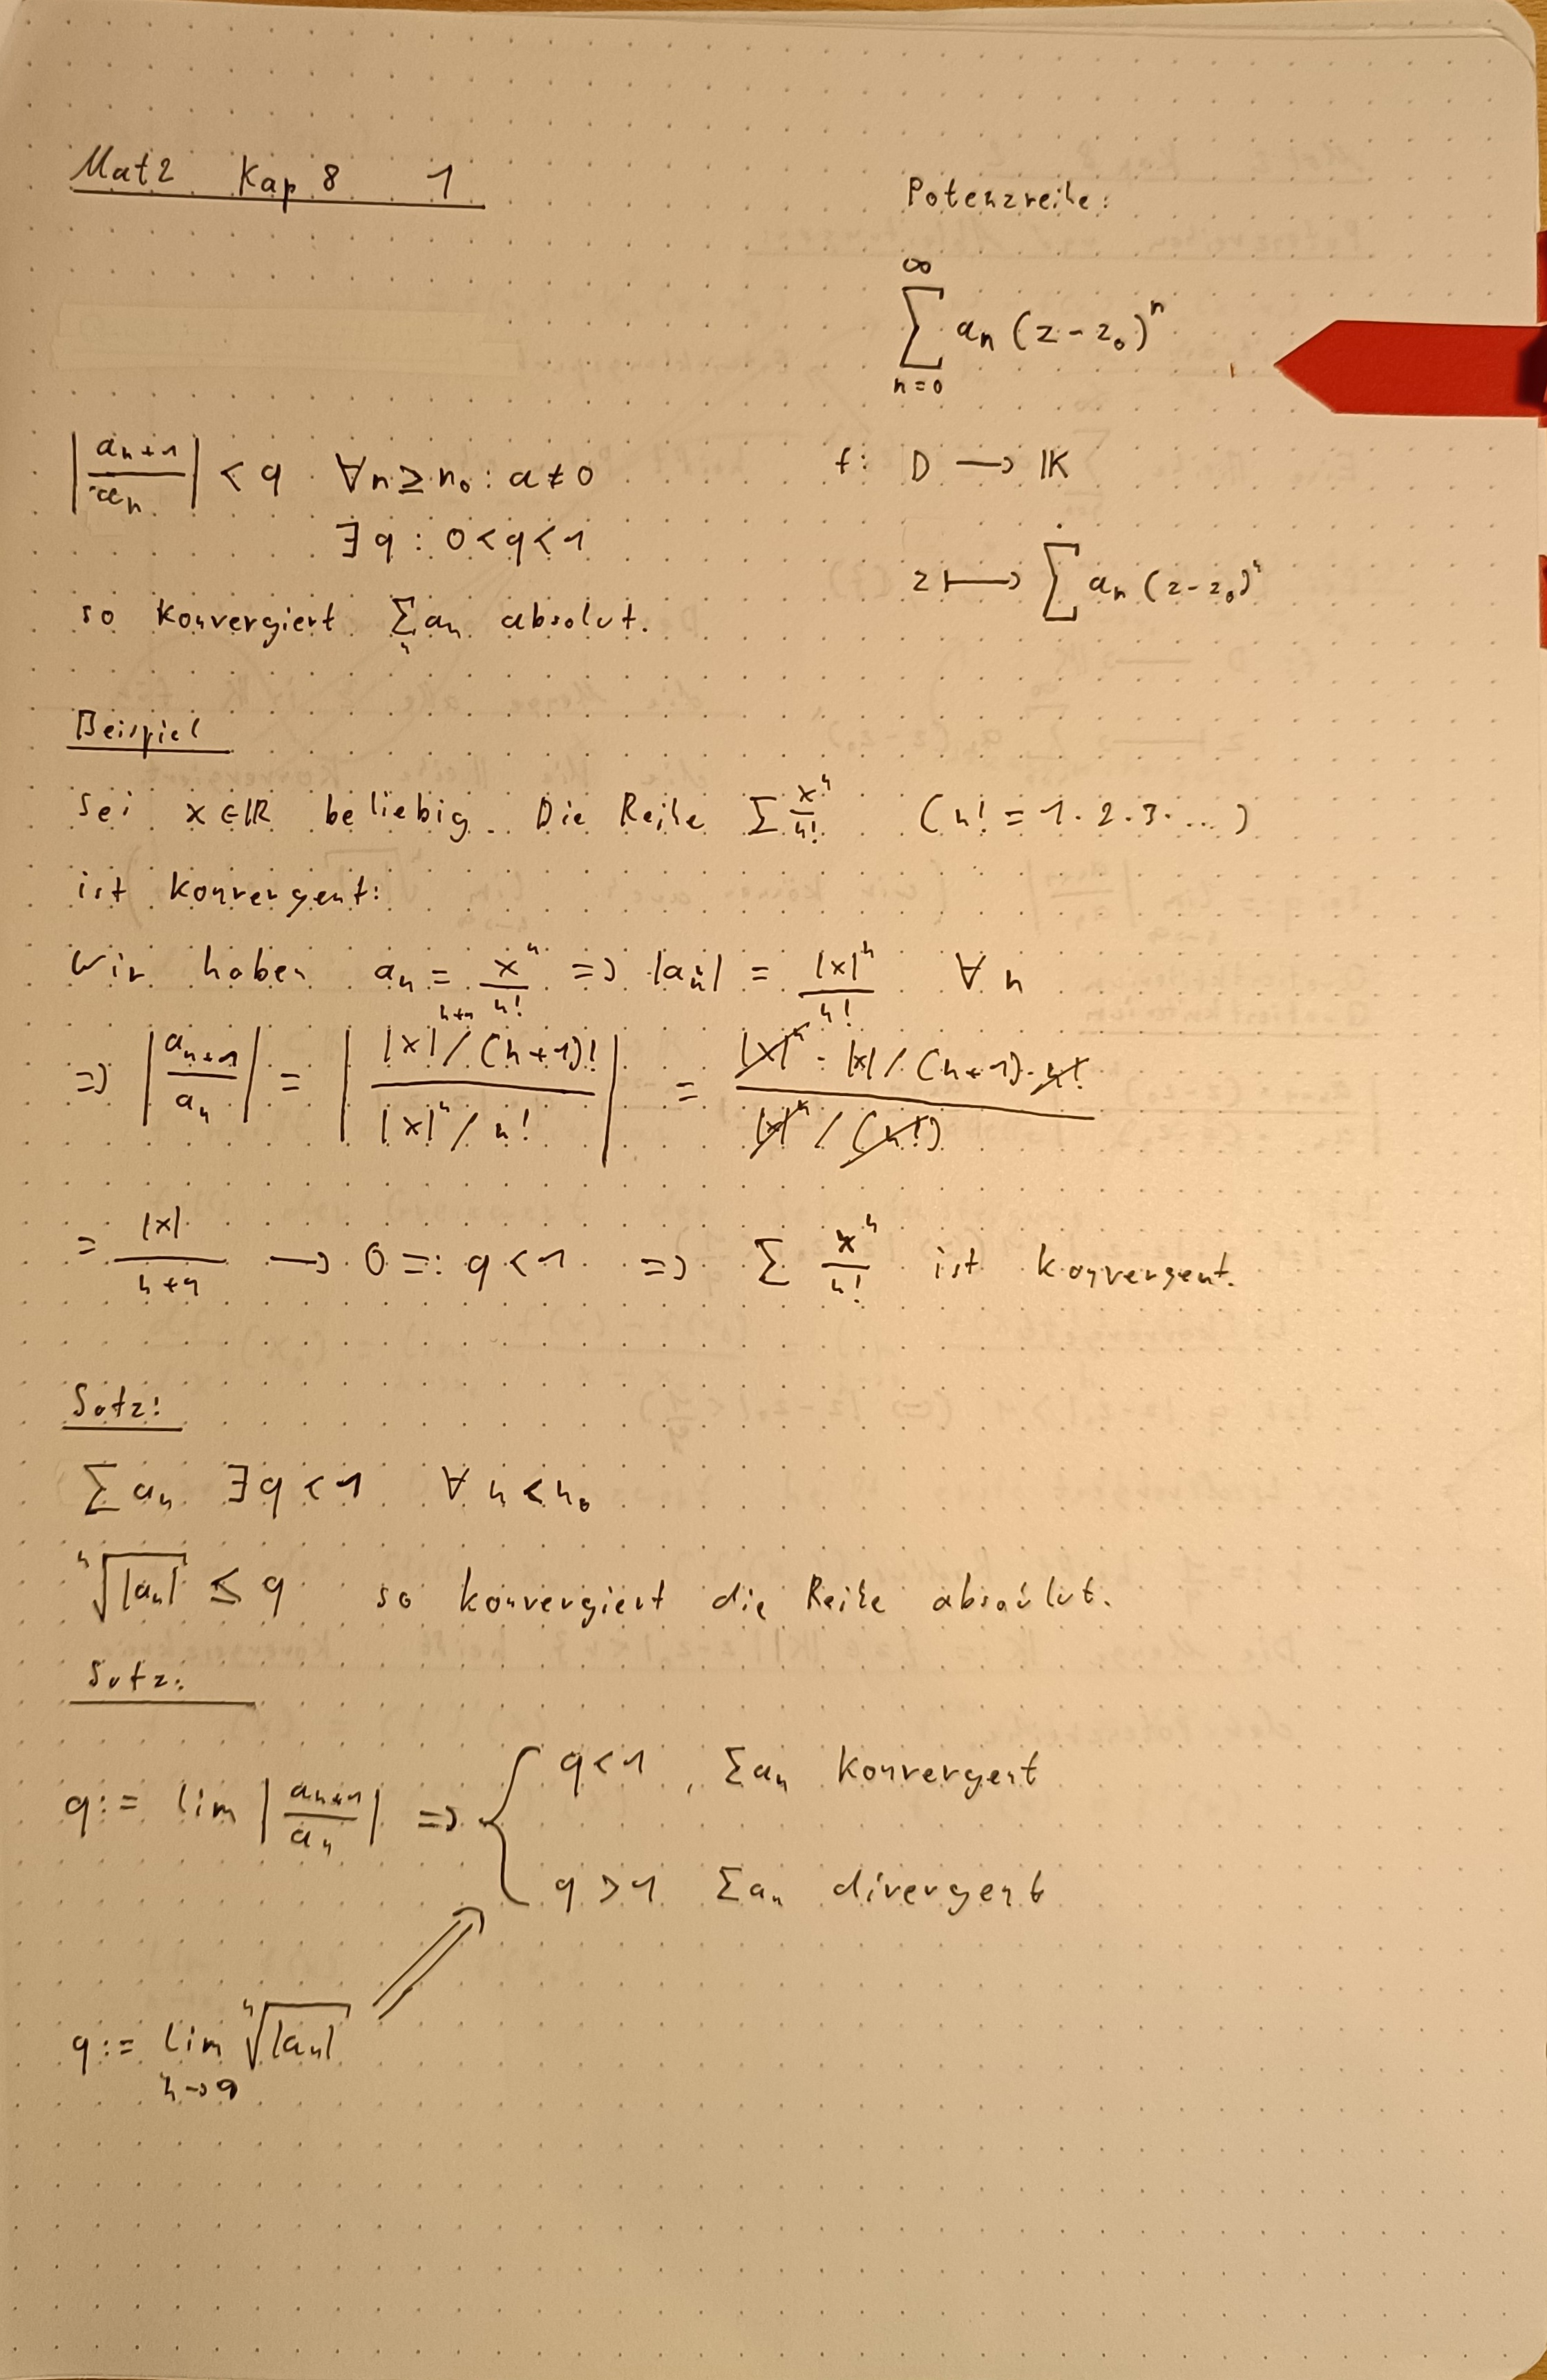 Mat2 Kap 8 1
Potenzreihe:
∞
∑ aₙ (z - z₀)ⁿ
n=0
|aₙ₊₁ / aₙ| < q ∀n ≥ n₀ : a ≠ 0
∃ q : 0 < q < 1
so konvergiert ∑ₙ aₙ absolut.
f: D ⟶ 𝕂
z ⟼ ∑ aₙ (z - z₀)ⁿ
Beispiel
Sei x ∈ ℝ beliebig. Die Reihe ∑ xⁿ/n! (n! = 1 · 2 · 3 · ...)
ist konvergent:
Wir haben aₙ = xⁿ/n! => |aₙ| = |x|ⁿ/n! ∀ n
=> |aₙ₊₁ / aₙ| = | (|x|ⁿ⁺¹ / (n+1)!) / (|x|ⁿ / n!) | = (|x|ⁿ · |x| / (n+1) · n!) / (|x|ⁿ / (n!))
= |x| / (n+1) ⟶ 0 =: q < 1 => ∑ xⁿ/n! ist konvergent.
Satz:
∑ aₙ ∃ q < 1 ∀ n < n₀
ⁿ√|aₙ| ≤ q so konvergiert die Reihe absolut.
Satz:
q := lim |aₙ₊₁ / aₙ| => { q < 1, ∑aₙ konvergent
q > 1 ∑aₙ divergent
q := lim ⁿ√|aₙ|
n→∞